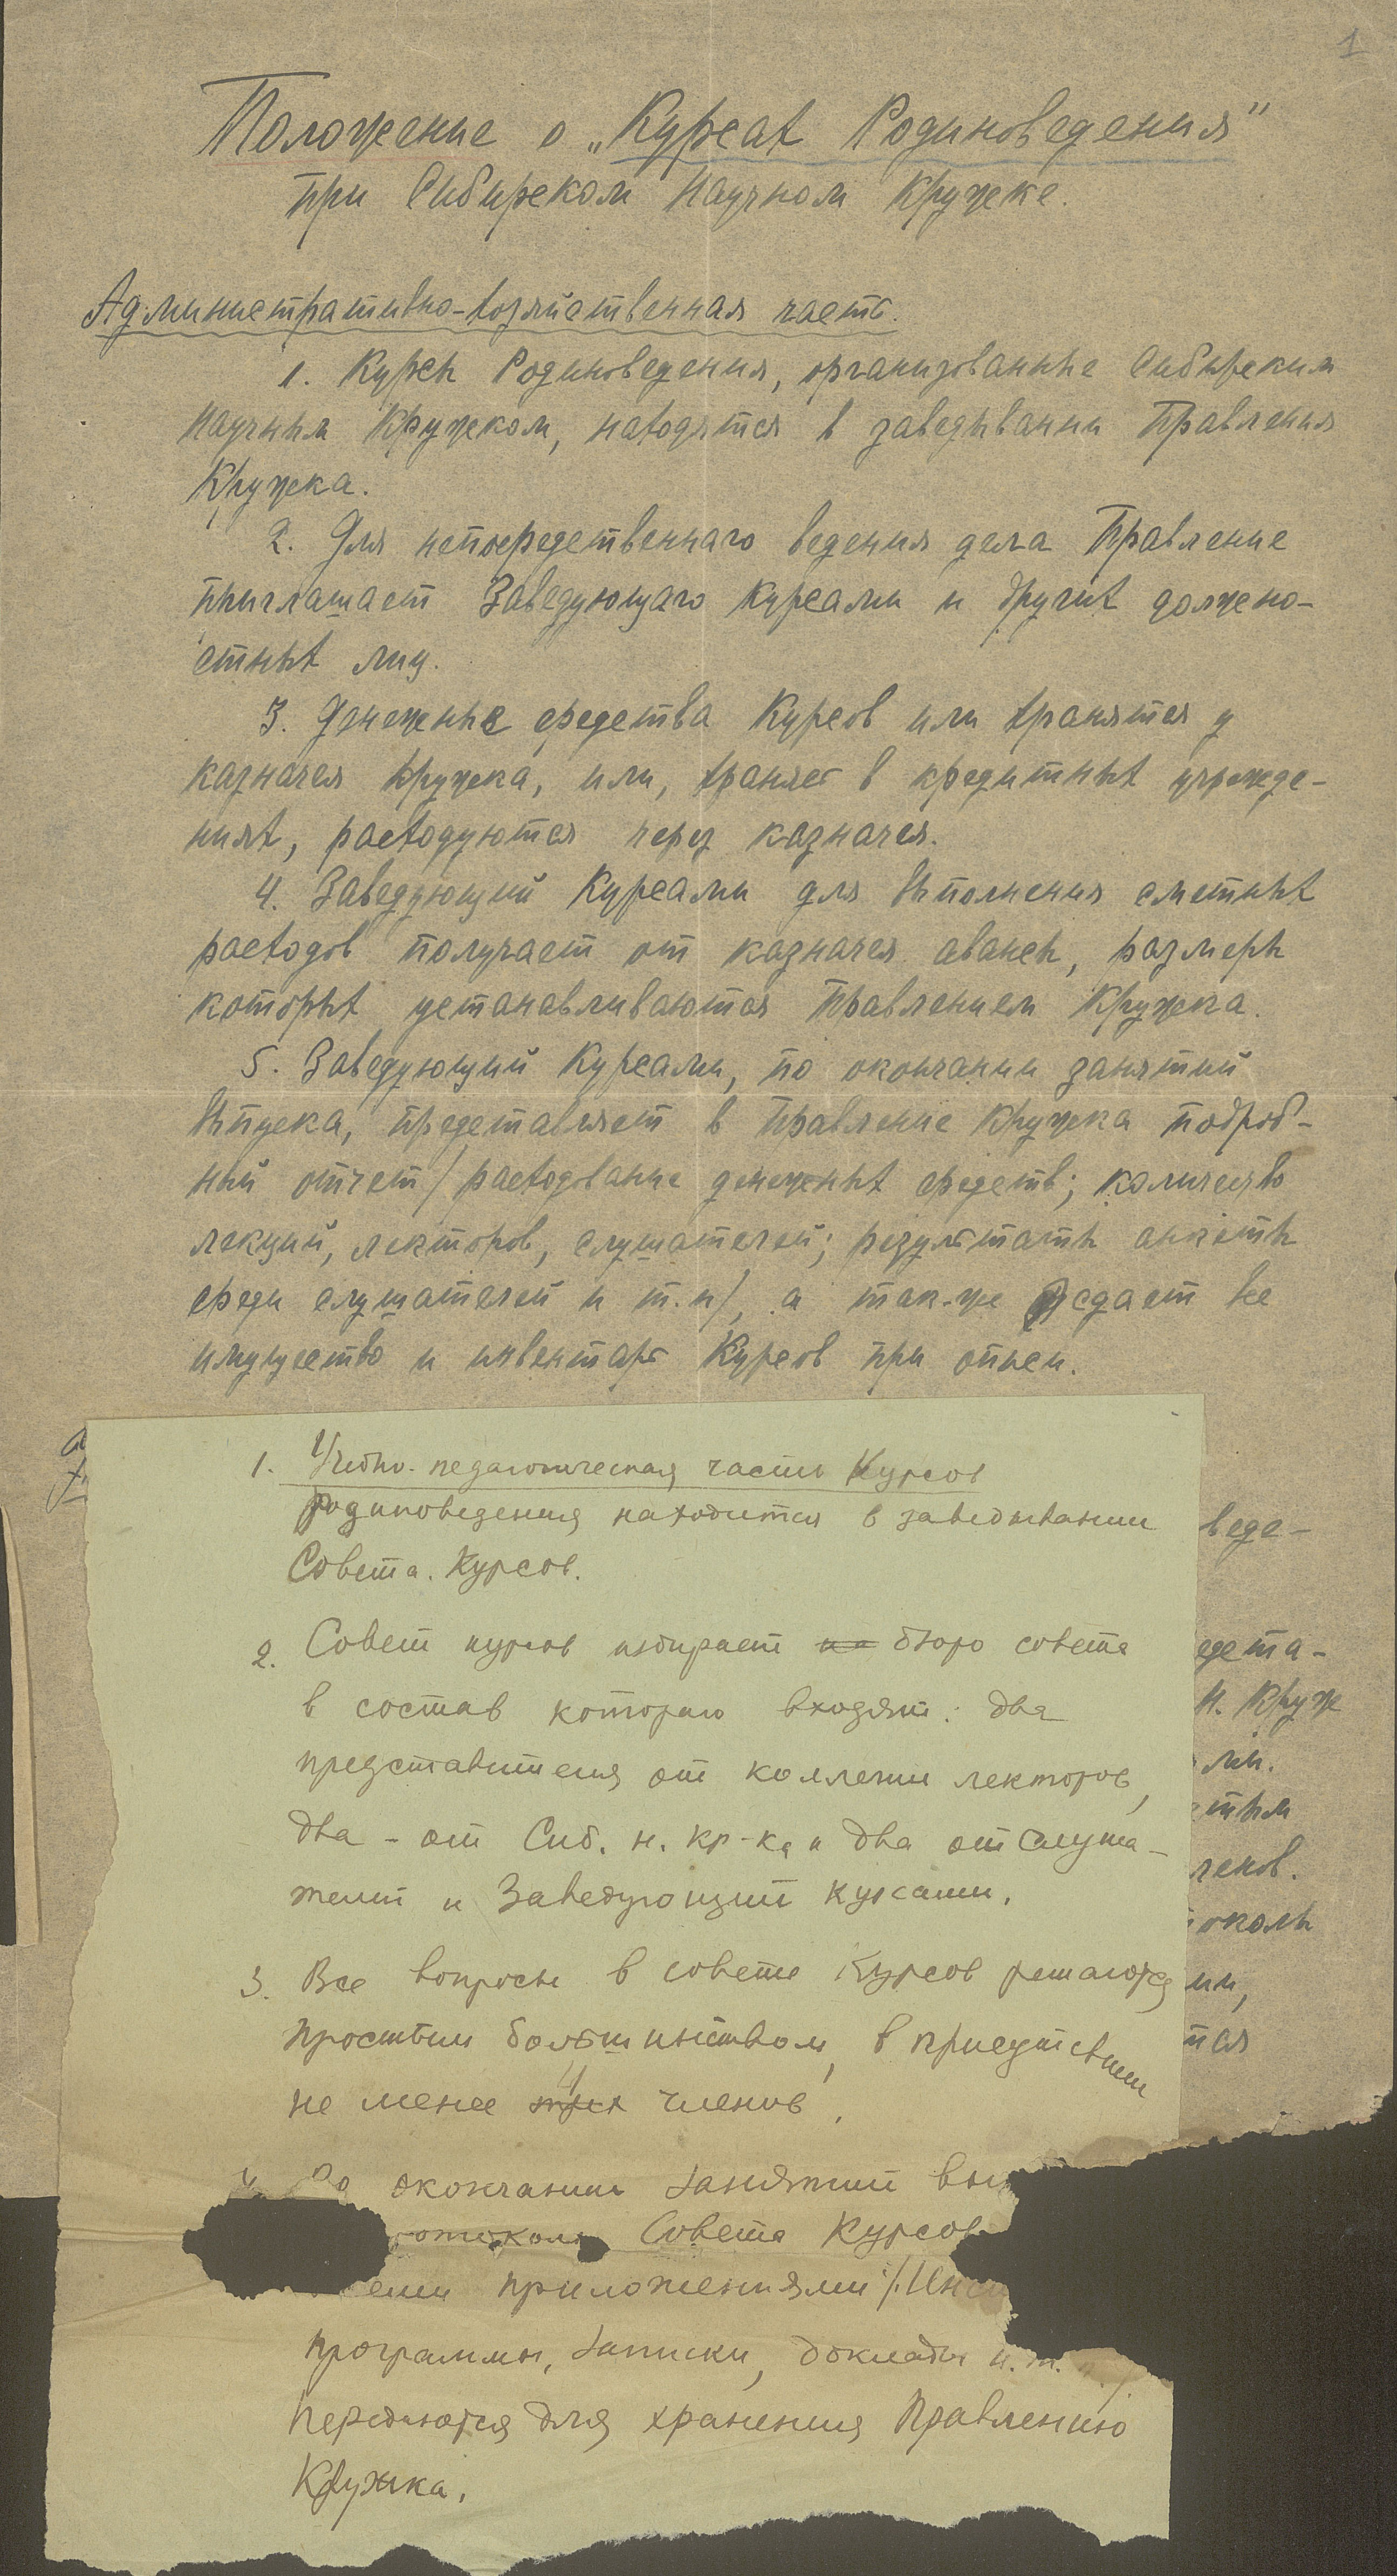 1
Положение о „Курсах Родиноведения"
при Сибирском Научном Кружке.
Административно-хозяйственная часть.
1. Курсы Родиноведения, организованные Сибирским
Научным Кружком, находятся в заведывании Правления
Кружка.
2. Для непосредственнаго ведения дела Правление
приглашает Заведующаго Курсами и других должно-
стных лиц.
3. Денежные средства Курсов или хранятся у
казначея Кружка, или, хранясь в кредитных учрежде-
ниях, расходуются через казначея.
4. Заведующий Курсами для выполнения сметных
расходов получает от казначея авансы, размеры
которых устанавливаются Правлением Кружка.
5. Заведующий Курсами, по окончании занятий
выпуска, представляет в Правление Кружка подроб-
ный отчет /расходование денежных средств; количество
лекций, лекторов, слушателей; результаты анкеты
среди слушателей и т.п/, а так-же сдает все
имущество и инвентарь Курсов при описи.
1. Учебно-педагогическая часть Курсов
Родиноведения находится в заведывании
Совета Курсов.
веде-
2. Совет курсов избирает на бюро совета
в состав котораго входят: два
представителя от коллегии лекторов,
два - от Сиб. н. кр-ка и два от слуша-
телей и Заведующий курсами.
едста-
Н. Круж
ли.
тым
ленов.
околы
3. Все вопросы в совете Курсов решаются
простым большинством, в присутствии
не менее трех 4 членов.
ми,
тся
4. По окончании занятий вы
протоколы Совета Курсов
всеми приложениями /.
программы, записки, доклады и.т.п./
передаются для хранения Правлению
Кружка.